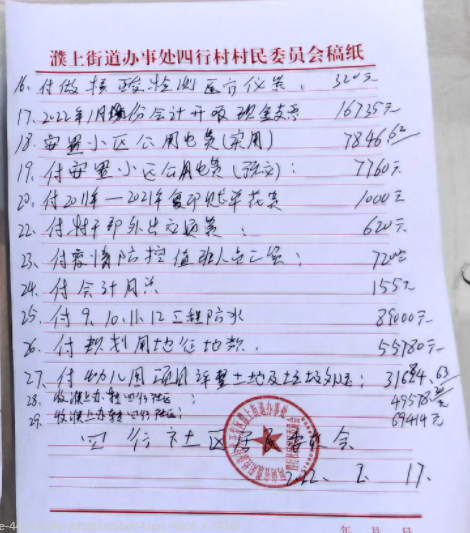 濮上街道办事处四行村村民委员会稿纸
16. 付做核酸检测医疗仪器: 320元
17. 2022年1月份会计开取现金支票 16735元
18. 安置小区公用电费(实用) 7846.62
19. 付安置小区公用电费(预交): 7760元
20. 付2011年—2021年复印账单花费 1000元
22. 付村干部外出交通费: 620元
23. 付疫情防控值班人员工资: 720元
24. 付会计用 155元
25. 付9.10.11.12工程防水 85000元
26. 付规划用地征地款. 55780元
27. 付幼儿园项目 土地及垃圾 : 31684.63
28. 收濮上办转四行社区: 49578
29. 收濮上办转四行社区: 69414元
四行社区居民委员会
2022. 2. 17.
年 月 日